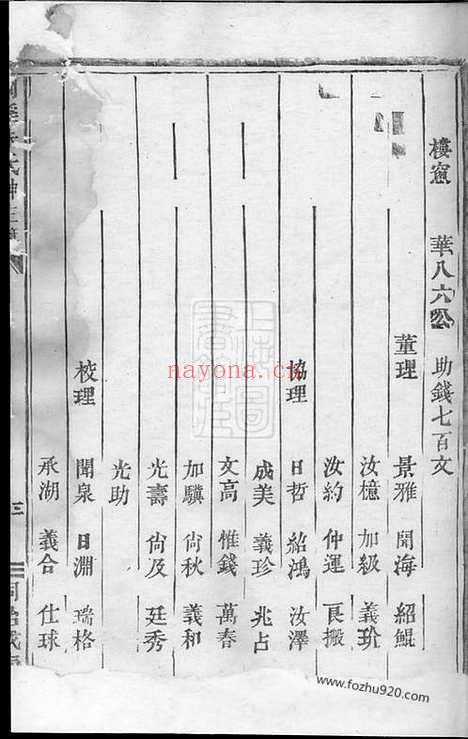 樓窗 華八六公 助錢七百文
董理 景雅 聞海 紹鯤
汝檍 加級 義玠
汝約 仲運 良搬
協理 日哲 紹鴻 汝澤
成美 義珍 兆占
文高 惟錢 萬春
加驥 尙秋 義和
光壽 尙及 廷秀
光助
校理 聞泉 日淵 瑞格
承湖 義合 仕球
三
nayona.cn
www.fozhu920.com